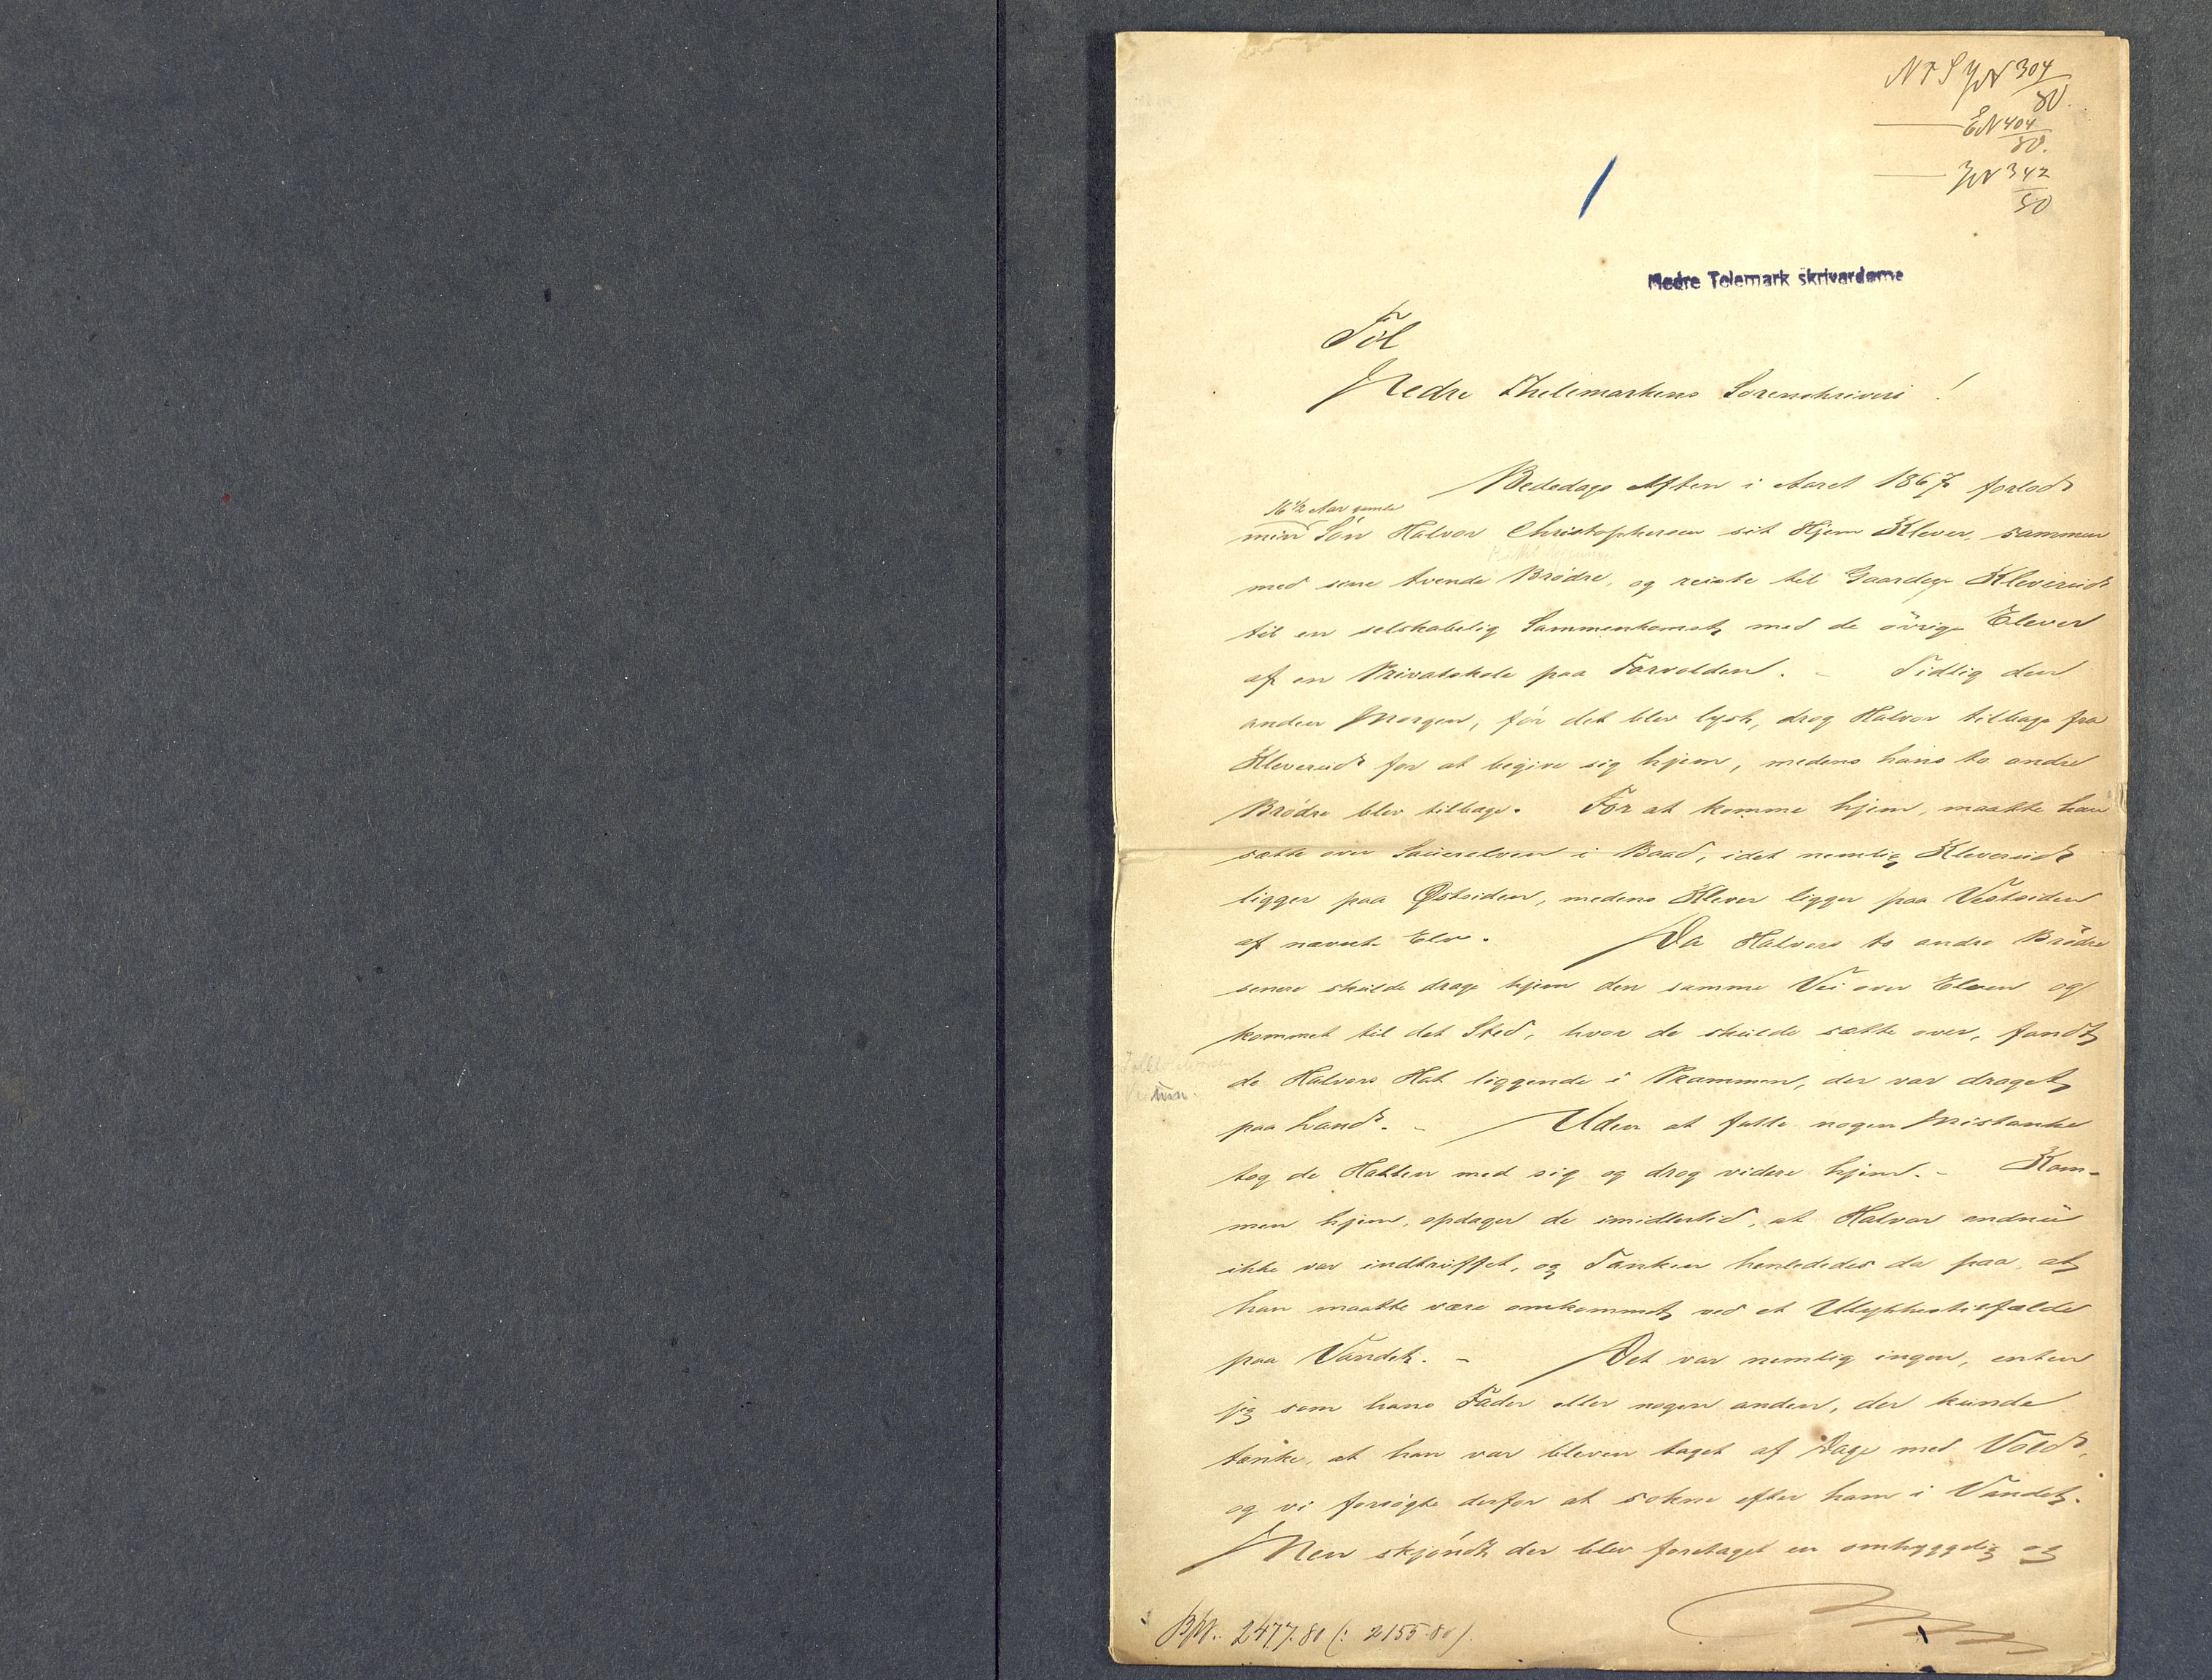 N T S J N 304
80.
E N 404
80.
J N 342
80
Nedre Telemark skrivardøme
Til
Nedre Thelemarkens Sorenskriveri!
Bededags Aften i Aaret 1867 forlod
16 1/2 Aar gamle
min Søn Halvor Christophersen sit Hjem Klever, sammen
med sine tvende Brødre, og reiste til Gaarden Klevereid
til en selskabelig Sammenkomst, med de øvrige Elever
af en Privatskole paa Torvolden. – Tidlig den
anden Morgen, før det blev lyst, drog Halvor tilbage fra
Klevereid for at begive sig hjem, medens hans to andre
Brødre blev tilbage. For at komme hjem, maatte han
sætte over Sauerelven i Baad, idet nemlig Klevereid
ligger paa Østsiden, medens Klever ligger paa Vestsiden
af nævnte Elv. Da Halvors to andre Brødre
senere skulde drage hjem den samme Vei over Elven og
kommet til det Sted, hvor de skulde sætte over, fandt
de Halvors Hat liggende i Prammen, der var draget
paa Land. – Uden at fatte nogen Mistanke
tog de Hatten med sig og drog videre hjem. – Kom-
men hjem, opdaged de imidlertid, at Halvor endnu
ikke var indtruffet, og Tanken henlededes da paa, at
han maatte være omkommet ved et Ulykkestilfælde
paa Vandet. – Det var nemlig ingen, enten
jeg som hans Fader eller nogen anden, der kunde
tænke, at han var bleven taget af Dage med Vold,
og vi forsøgte derfor at sokne efter ham i Vandet.
Men skjøndt der blev foretaget en omhyggelig og
2477.80 (: 2155.80)